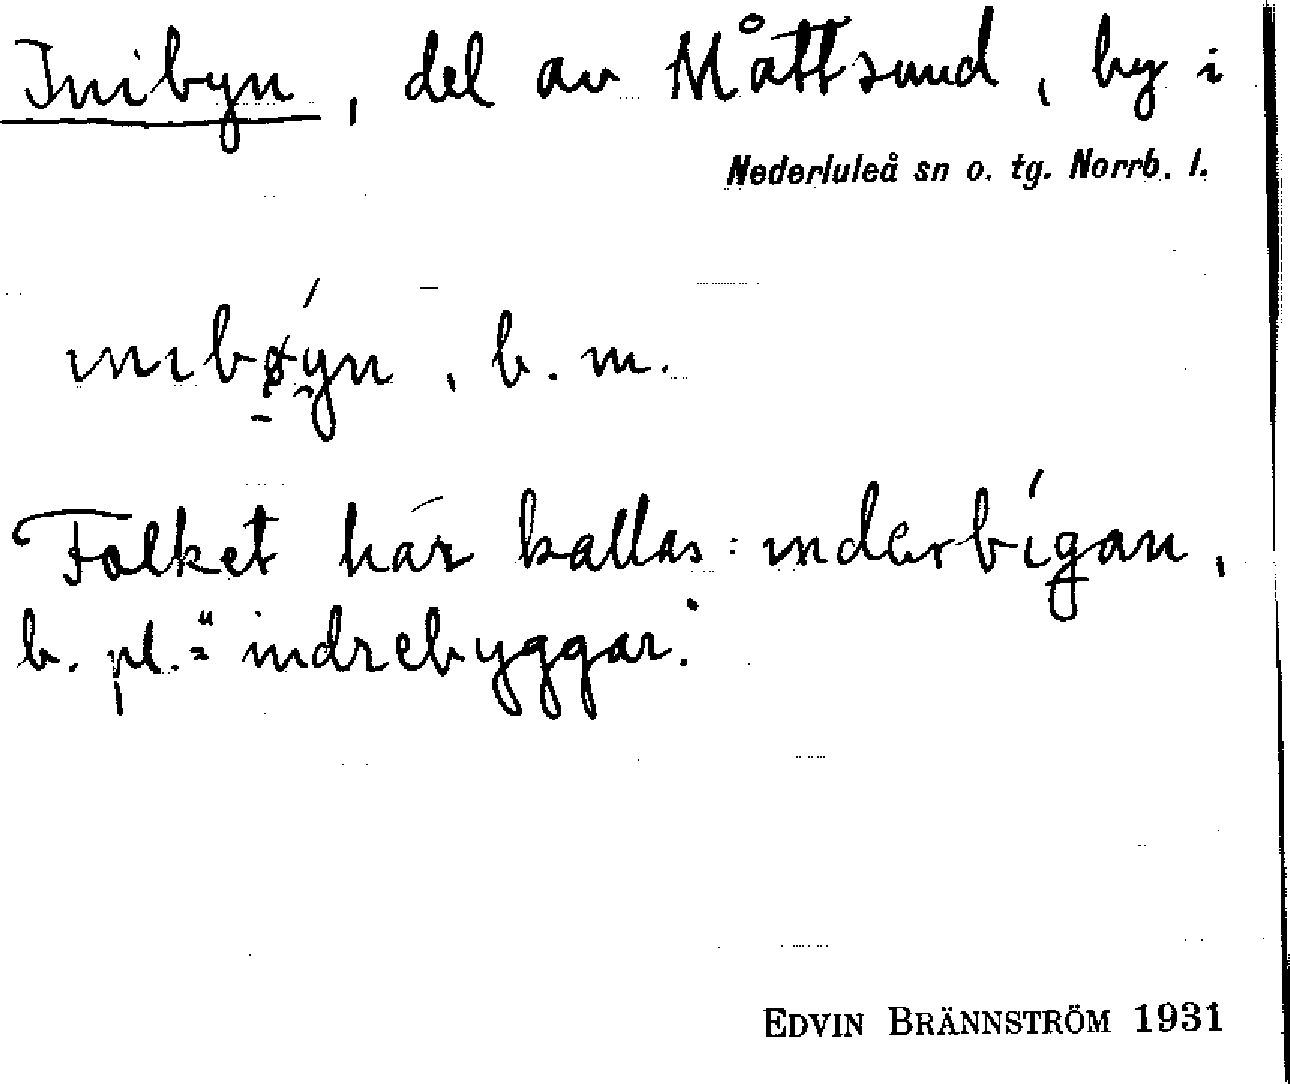 Inibyn, del av Måttsund, by i
Nederluleå sn o. tg. Norrb. l.
inibǿyn, b. m.
Folket här kallas: inderbígan,
b. pl. = "indrebyggar."
EDVIN BRÄNNSTRÖM 1931